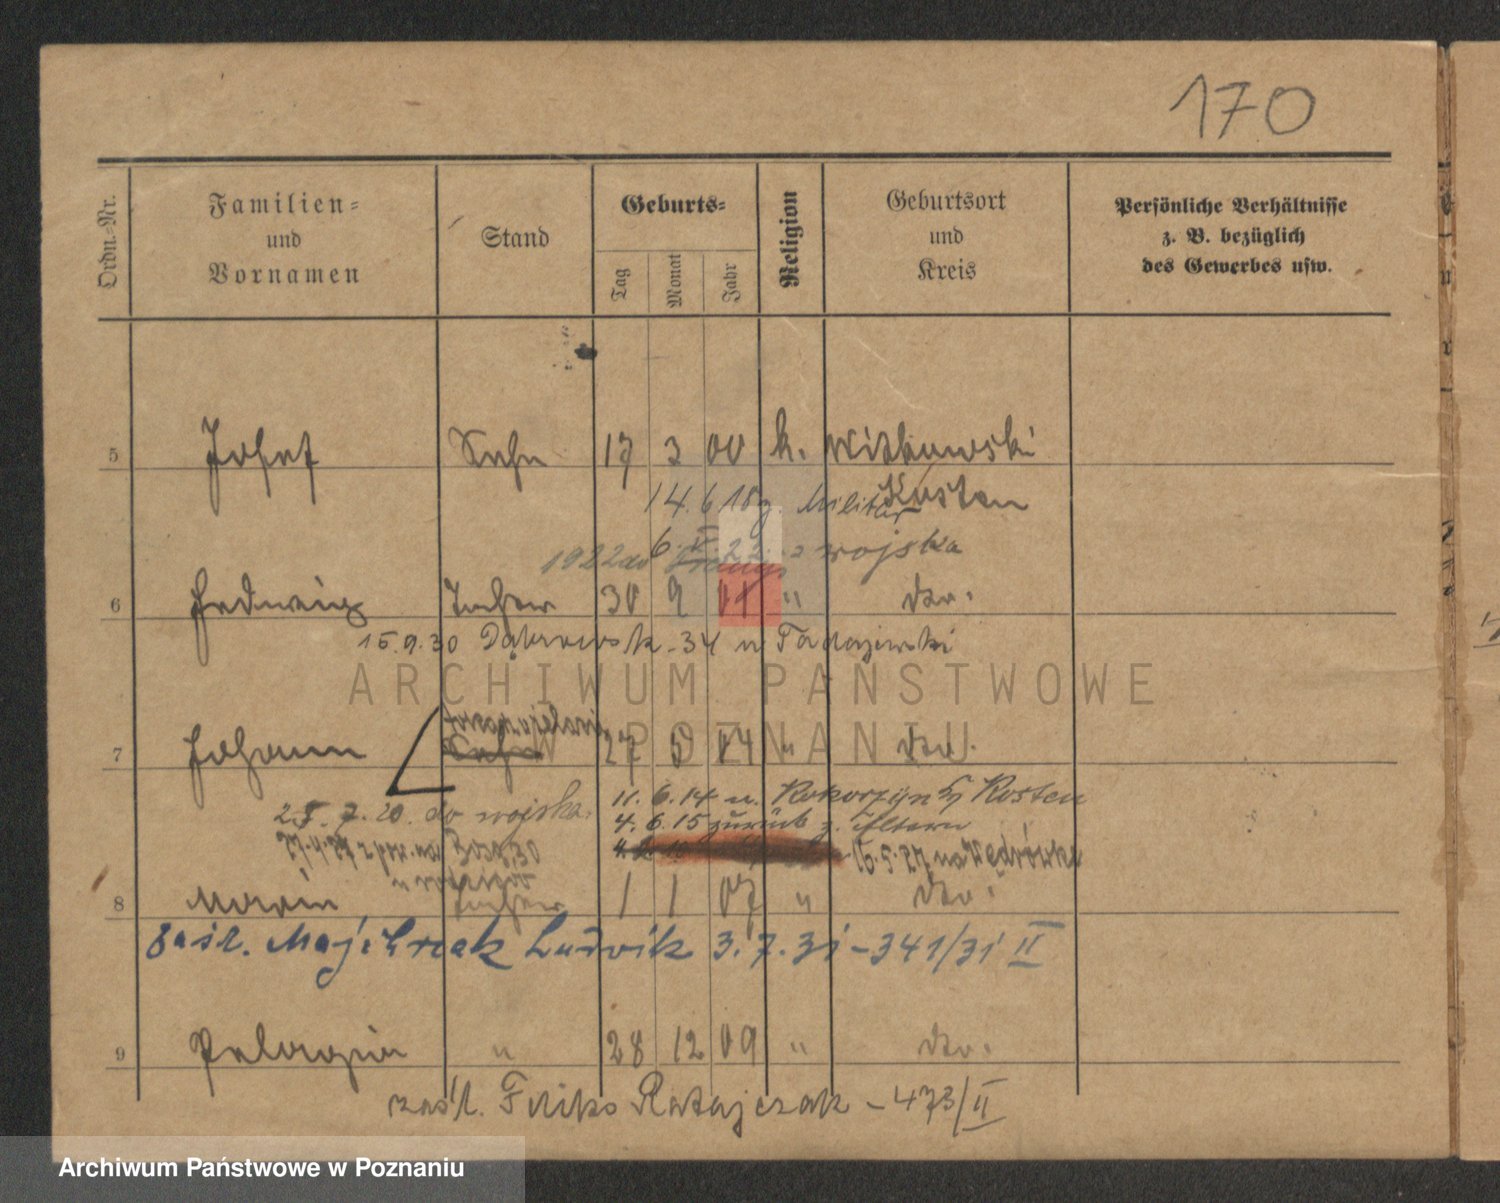 170
Ordn.-Nr.
Familien=
und
Vornamen
Stand
Geburts=
Tag
Monat
Jahr
Religion
Geburtsort
und
Kreis
Persönliche Verhältnisse
z. B. bezüglich
des Gewerbes usw.
5 Josef Sohn 17 3 00 k. Witkowski
Kosten
14.6.18 z. Militär
6. V. 22 z wojska
1922 do
6 Hedwig Tochter 30 9 01 " dto.
15.9.30 Dąbrowsk - 34 u Tadajewski
ARCHIWUM PAŃSTWOWE
W POZNANIU
7 Johann Sohn 27 5 04 " dto.
11. 6. 14 n. Kokorzyn Kr Kosten
25. 7. 20. do wojska. 4. 6. 15 zurück z. Eltern
16.5.27 na
8 Maria Tochter 1 1 07 " dto.
zaśl. Majchrzak Ludwik 3. 7. 31 - 341/31 II
9 Pelagia " 28 12 09 " dto.
zaśl. Feliks Ratajczak - 473/II
Archiwum Państwowe w Poznaniu